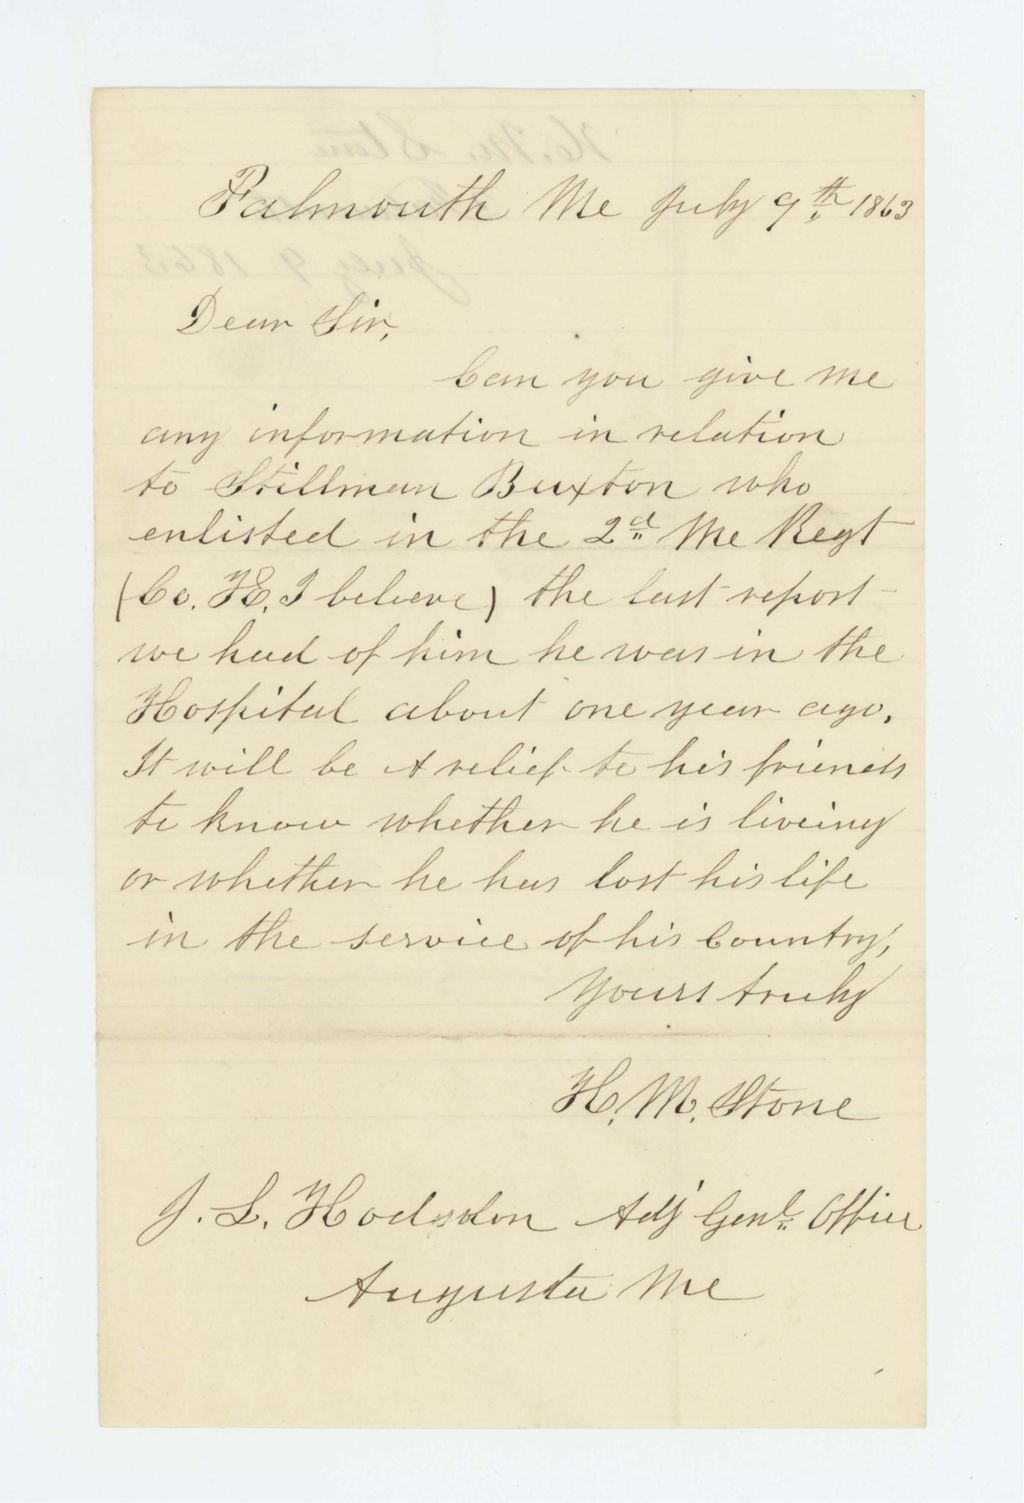 Falmouth Me July 9th, 1863
Dear Sir,
Can you give me
any information in relation
to Stillman Buxton who
enlisted in the 2d Me Regt
(Co. H. I beleive) the last report
we had of him he was in the
Hospital about one year ago.
It will be A relief to his friends
to know whether he is liveing
or whether he has lost his life
in the service of his Country,
Yours truly
H. M. Stone
J. L. Hodsdon Adj Genl Office
Augusta Me